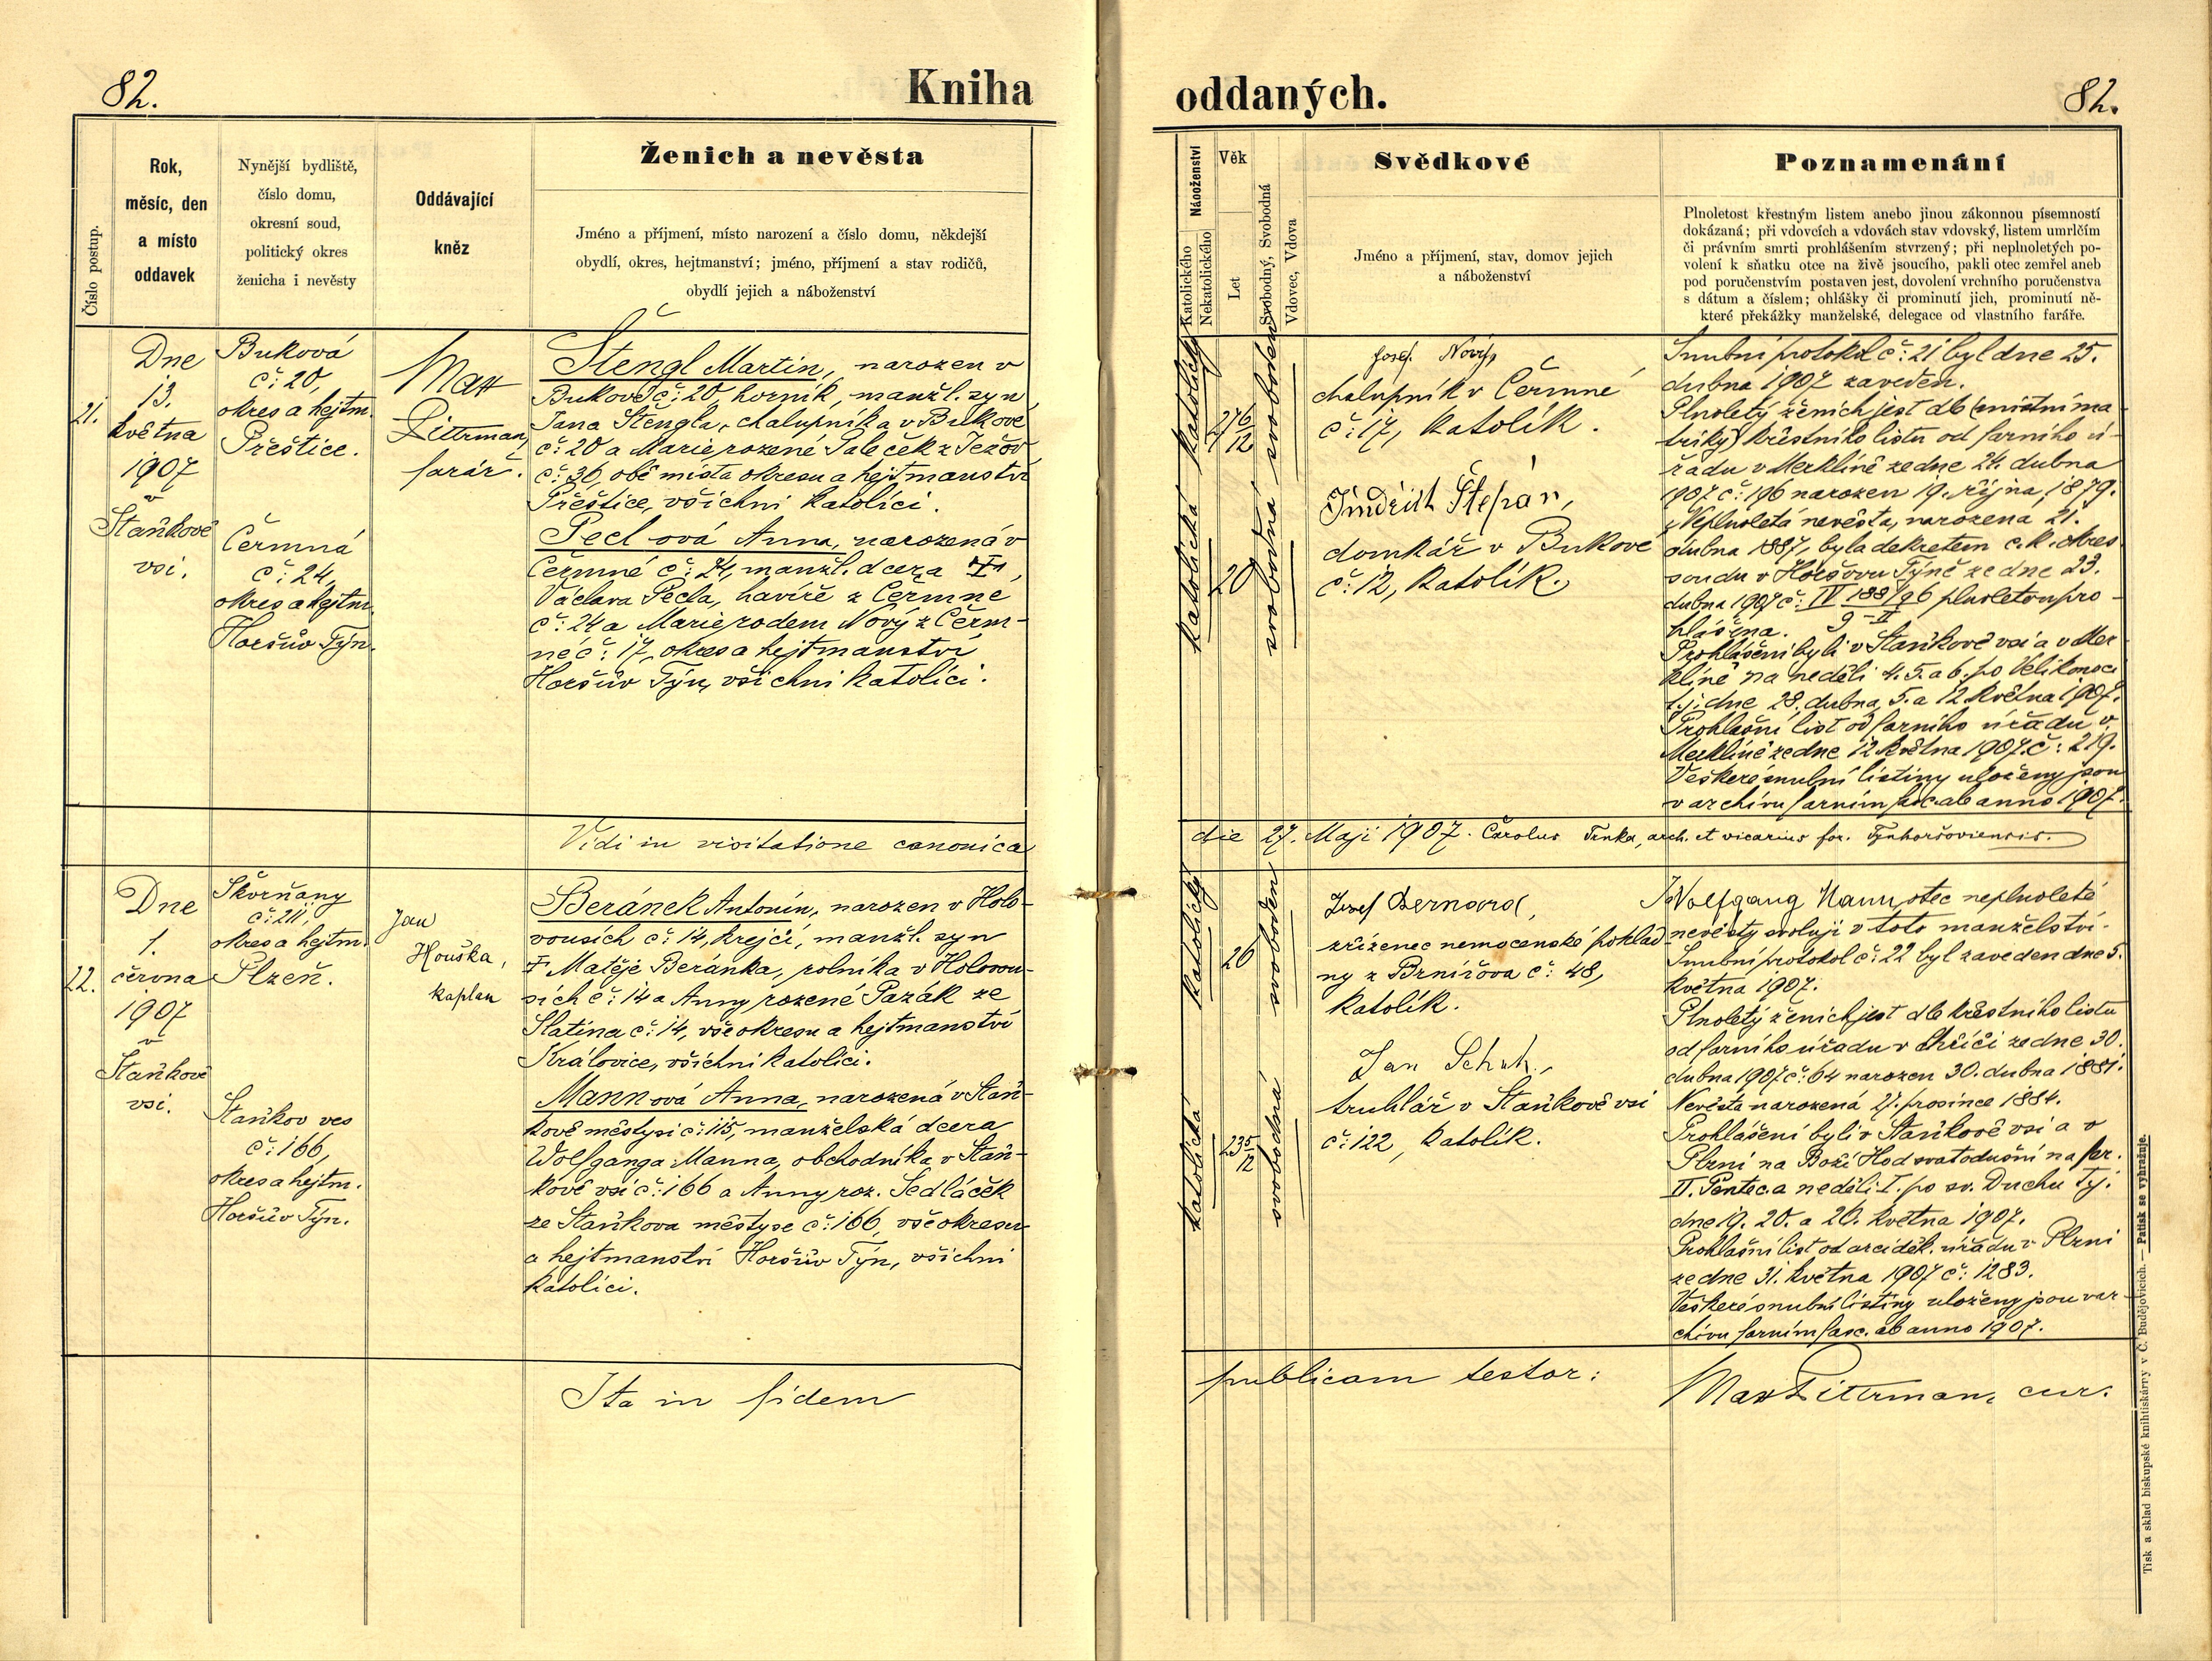 82.
Kniha
oddaných.
82.
Číslo postup.
Rok,
měsíc, den
a místo
oddavek
Nynější bydliště,
číslo domu,
okresní soud,
politický okres
ženicha i nevěsty
Oddávající
kněz
Ženich a nevěsta
Jméno a příjmení, místo narození a číslo domu, někdejší
obydlí, okres, hejtmanství; jméno, příjmení a stav rodičů,
obydlí jejich a náboženství
Náboženství
Katolického
Nekatolického
Věk
Let
Svobodný, Svobodná
Vdovec, Vdova
Svědkové
Jméno a příjmení, stav, domov jejich
a náboženství
Poznamenání
Plnoletost křestným listem anebo jinou zákonnou písemností
dokázaná; při vdovcích a vdovách stav vdovský, listem umrlčím
či právním smrti prohlášením stvrzený; při neplnoletých po-
volení k sňatku otce na živě jsoucího, pakli otec zemřel aneb
pod poručenstvím postaven jest, dovolení vrchního poručenstva
s dátum a číslem; ohlášky či prominutí jich, prominutí ně-
které překážky manželské, delegace od vlastního faráře.
21.
Dne
13.
května
1907
v
Staňkově
vsi.
Buková
č: 20,
okres a hejtm.
Přeštice.
Čermná
č: 24,
okres a hejtm.
Horšův Týn.
Max
Dittrman,
farář.
Štengl Martin, narozen v
Bukově č: 20, horník, manžl. syn
Jana Štengla, chalupníka v Bukové
č: 20 a Marie rozené Paleček z Ježov
č: 36, obě místa okresu a hejtmanství
Přeštice, všichni katolíci.
Pecl ová Anna, narozená v
Čermné č: 24, manžl. dcera
Václava Pecla, havíře z Čermné
č: 24 a Marie rodem Nový z Čerm-
né č: 17, okres a hejtmanství
Horšův Týn, všichni katolíci.
katolický
27 6/12
svoboden
katolická
20
svobodná
Josef Nový,
chalupník v Čermné
č: 17, katolík.
Jindřich Štěpán,
domkář v Bukové
č: 12, katolík.
Snubní protokol č: 21 byl dne 25.
dubna 1907 zaveden.
Plnoletý ženich jest dle (místní ma
triky) křestního listu od farního ú-
řadu v Merklíně ze dne 24. dubna
1907 č: 196 narozen 19. října, 1879.
Neplnoletá nevěsta, narozená 21.
dubna 1887, byla dekretem c. k. okres
soudu v Horšovu Týně ze dne 23.
dubna 1907 č: IV 188/96 plnoletou pro-
9-II
hlášena.
Prohlášeni byli v Staňkově vsi a v Mer
klíně na neděli 4. 5. a 6. po Velikonoci
t. j. dne 28. dubna, 5. a 12. května 1907.
Prohlašní list od farního úřadu v
Merklíně ze dne 12 května 1907. č: 219.
Veškeré snubní listiny uloženy jsou
v archivu farním fasc. ab anno 1907.
Vidi in visitatione canonica
die 27. Maji 1907. Carolus Trnka, arch. et vicarius for. Týnhoršoviensis.
22.
Dne
1.
června
1907
v
Staňkově
vsi.
Škvrňany
č: 211,
okres a hejtm.
Plzeň.
Staňkov ves
č: 166,
okres a hejtm.
Horšův Týn.
Jan
Houška,
kaplan
Beránek Antonín, narozen v Holo-
vousích č: 14, krejčí, manžl. syn
† Matěje Beránka, rolníka v Holovou-
sích č: 14 a Anny rozené Pazák ze
Slatina č: 14, vše okresu a hejtmanství
Kralovice, všichni katolíci.
Mannová Anna, narozená v Staň-
kově městysi č: 115, manželská dcera
Wolfganga Manna, obchodníka v Staň-
kově vsi č: 166 a Anny roz. Sedláček
ze Staňkova městyse č: 166, vše okresu
a hejtmanství Horšův Týn, všichni
katolíci.
katolický
26
svoboden
katolická
23 5/12
svobodná
Josef Bernard,
zřízenec nemocenské poklad
ny z Brnířova č: 48,
katolík.
Jan Schuh,
truhlář v Staňkově vsi
č: 122, katolík.
Wolfgang Mann, otec neplnoleté
nevěsty svoluji v toto manželství.
Snubní protokol č: 22 byl zaveden dne 5.
května 1907.
Plnoletý ženich jest dle křestního listu
od farního úřadu v Chříči ze dne 30.
dubna 1907 č: 64 narozen 30. dubna 1881.
Nevěsta narozená 27. prosince 1884.
Prohlášeni byli v Staňkově vsi a v
Plzni na Boží Hod svatodušní na fer.
II. Pentec. a neděli I. po sv. Duchu tj.
dne 19. 20. a 26. května 1907.
Prohlašní list od arciděk. úřadu v Plzni
ze dne 31. května 1907 č: 1283.
Veškeré snubní listiny uloženy jsou v ar-
chivu farním fasc. ab anno 1907.
Ita in fidem
publicam testor:
Max Dittrman, cur.
Tisk a sklad biskupské knihtiskárny v Č. Budějovicích. — Patisk se vyhražuje.